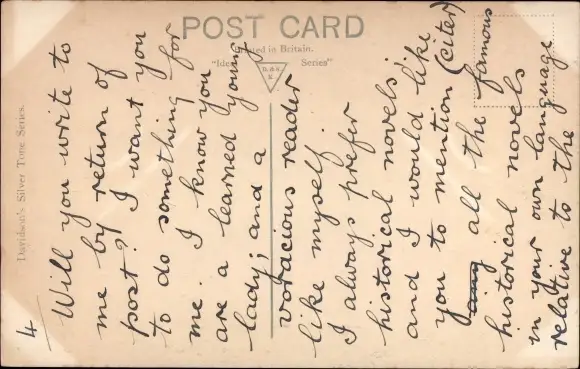 POST CARD
Printed in Britain.
"Ideal Series"
D.B.S.
K
Davidson's Silver Tone Series.
4
Will you write to
me by return of
post? I want you
to do something for
me. I know you
are a learned young
lady; and a
voracious reader
like myself.
I always prefer
historical novels
and I would like
you to mention (citer)
any all the famous
historical novels
in your own language
relative to the